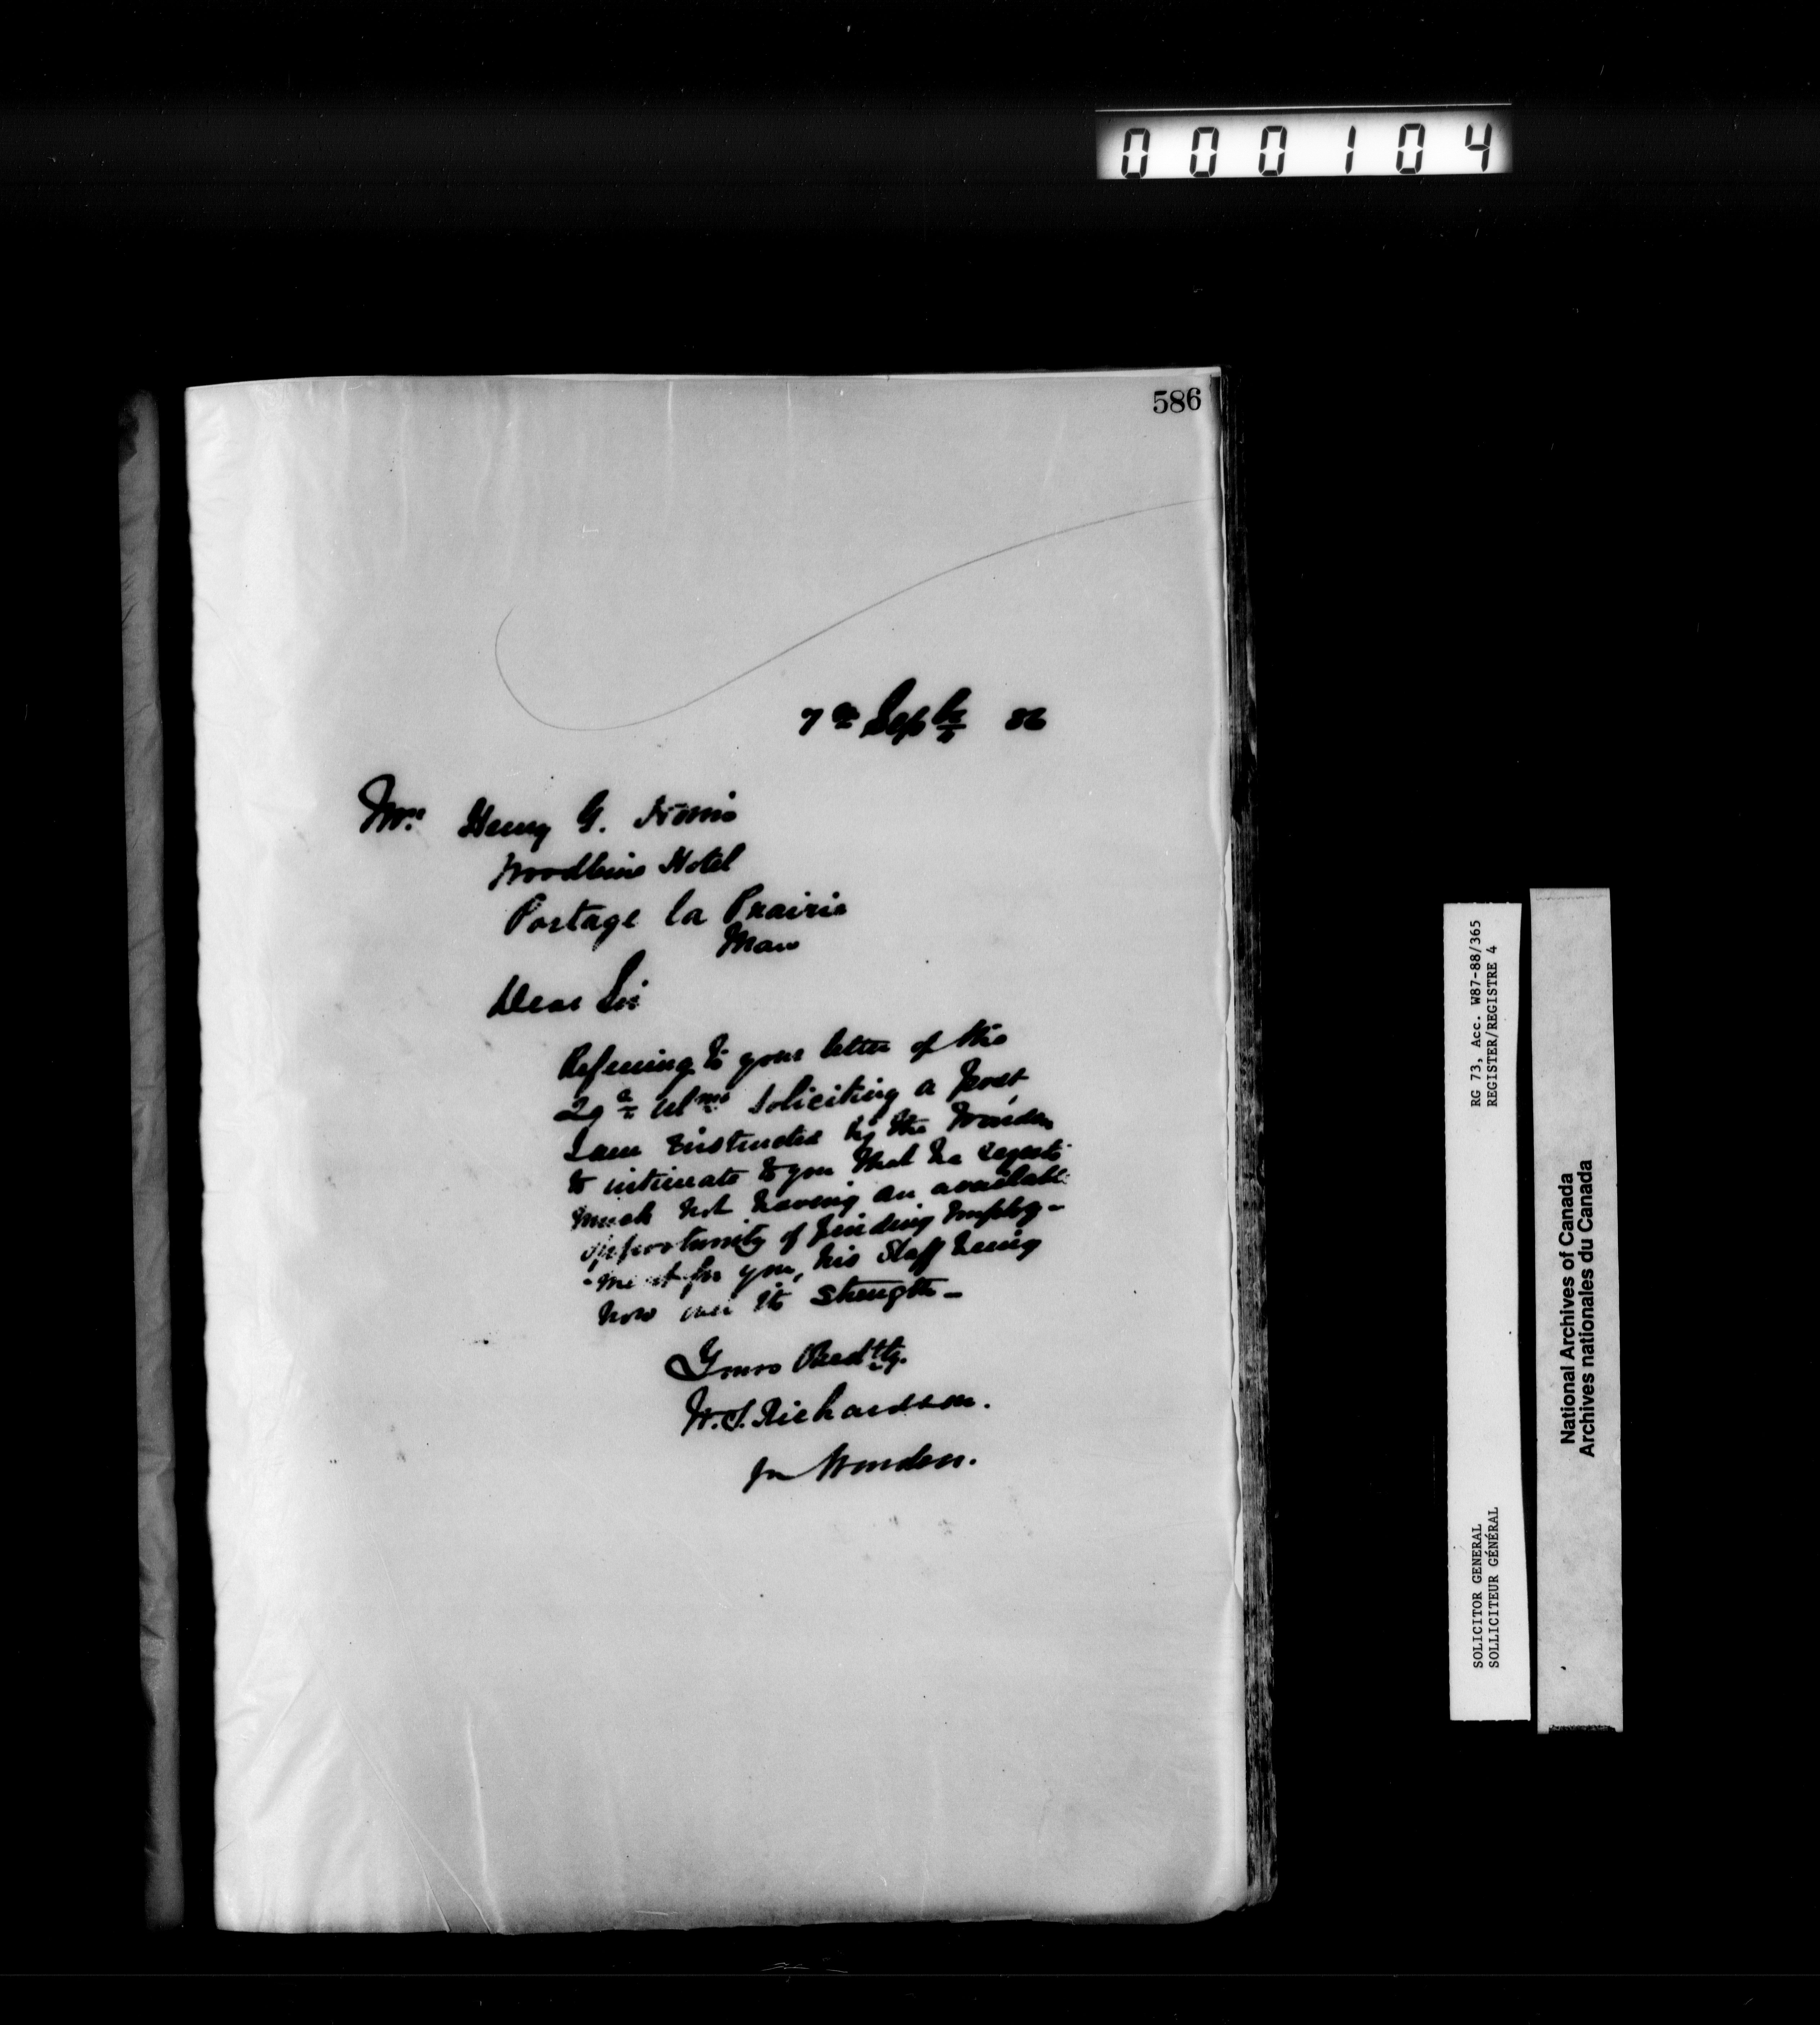 000104
586
7th Septr 86
Mr. Henry G.
Woodbine Hotel
Portage la Prairie
Man
Dear Sir
Referring to your letter of the
29th Ulmo soliciting a post
I am instructed by the Warden
to intimate to you that he regrets
much not having an available
opportunity of finding employ-
-ment for you, his Staff being
now over its strength -
Yours Obedtly.
W.S. Richardson.
for Warden.
RG 73, Acc. W87-88/365
REGISTER/REGISTRE 4
SOLICITOR GENERAL
SOLLICITEUR GÉNÉRAL
National Archives of Canada
Archives nationales du Canada